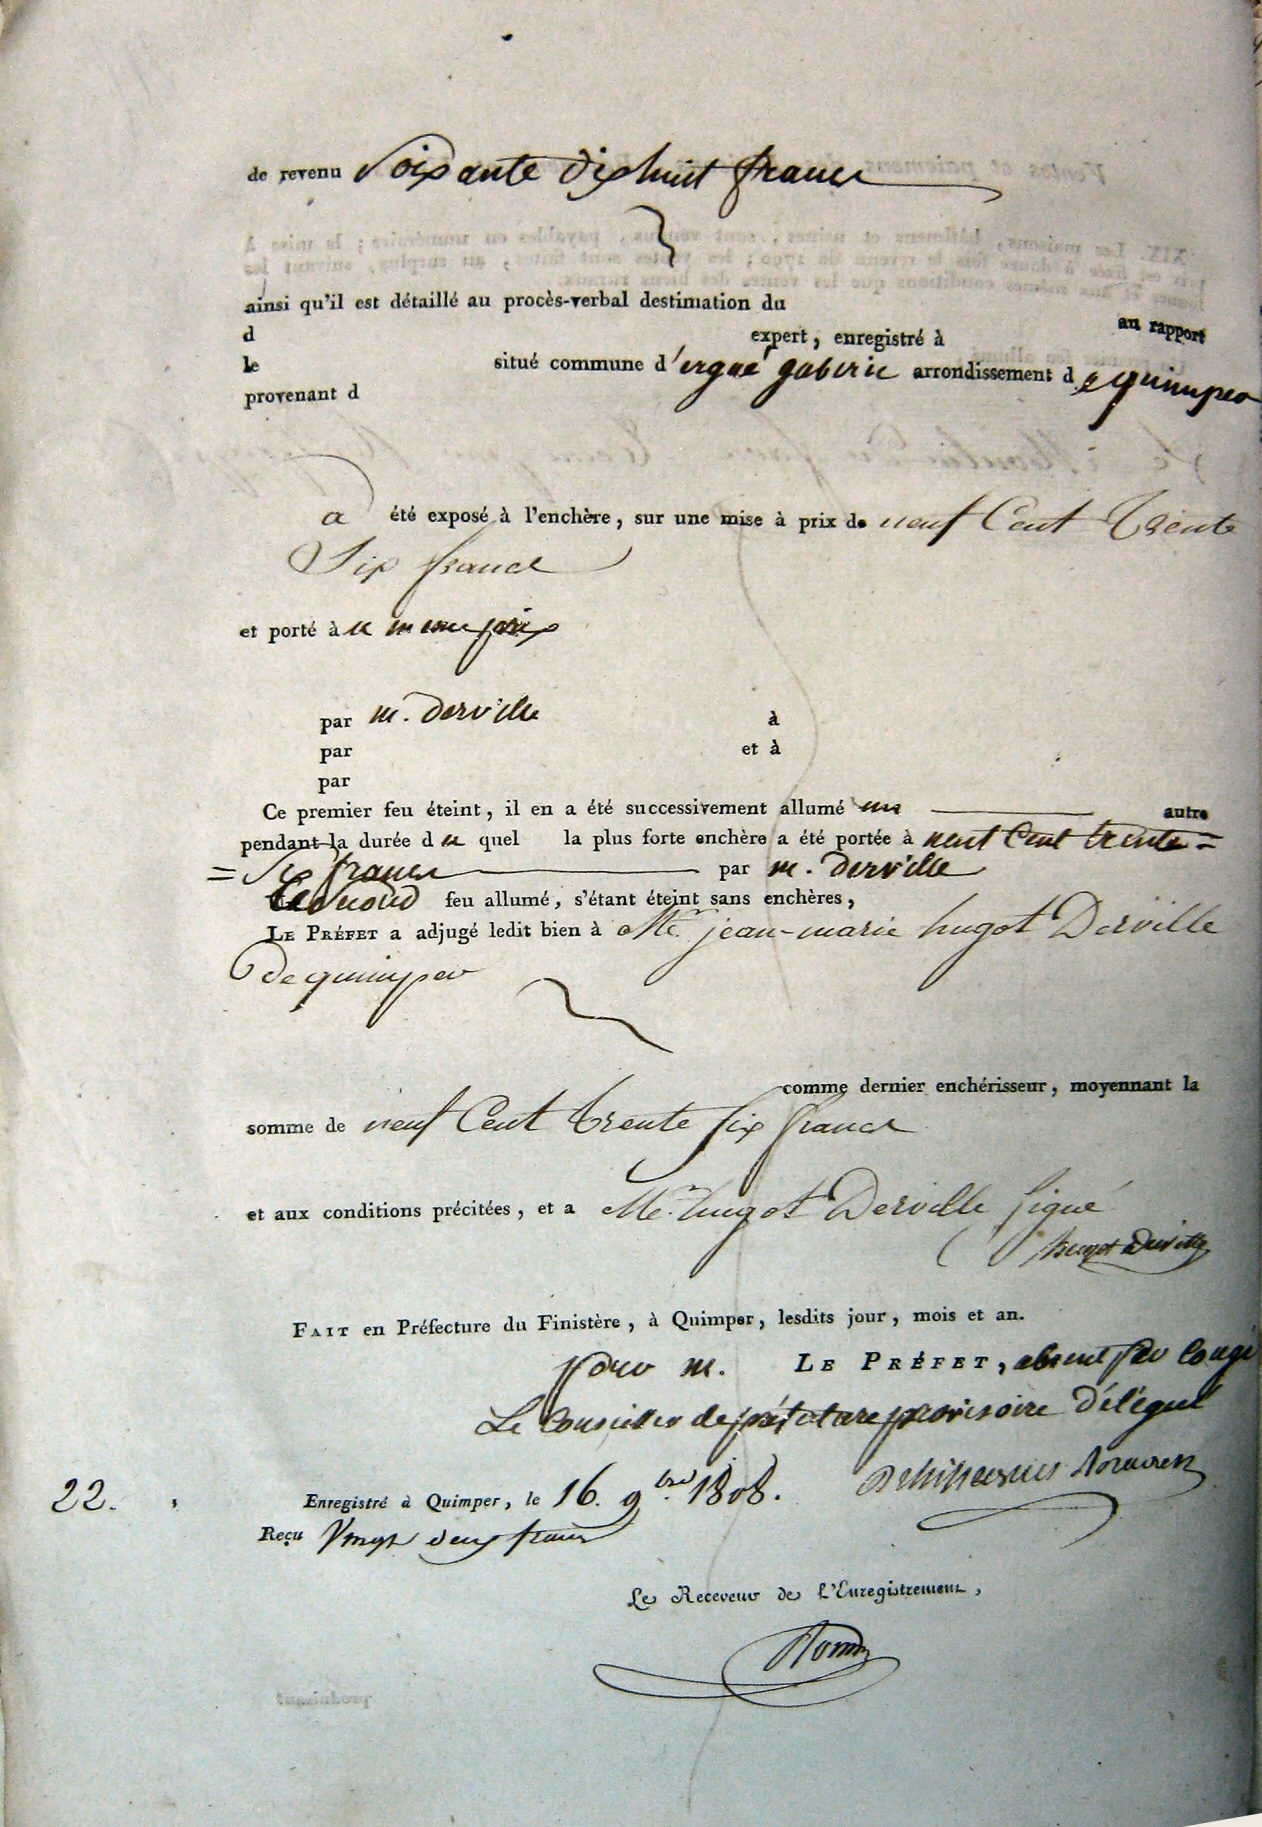 de revenu Soixante dix huit francs
ainsi qu'il est détaillé au procès-verbal destimation du
d expert, enregistré à au rapport
le situé commune d'ergué gaberic arrondissement de quimper
provenant d
a été exposé à l'enchère, sur une mise à prix de neuf Cent Trente
Six francs
et porté à ce meme prix
par m. derville à
par et à
par
Ce premier feu éteint, il en a été successivement allumé un autre
pendant la durée du quel la plus forte enchère a été portée à neuf Cent trente =
= Six francs par m. derville
Le Second feu allumé, s'étant éteint sans enchères,
LE PRÉFET a adjugé ledit bien à Mr. jean-marie hugot Derville
de quimper
comme dernier enchérisseur, moyennant la
somme de neuf Cent trente six francs
et aux conditions précitées, et a Mr. hugot Derville signé
hugot Derville
FAIT en Préfecture du Finistère, à Quimper, lesdits jour, mois et an.
pour m. LE PRÉFET, absent par Congé
Le Conseiller de préfecture provisoire Délégué
22. Enregistré à Quimper, le 16. 9bre 1808.
Reçu Vingt deux francs
Le Receveur de l'Enregistrement,